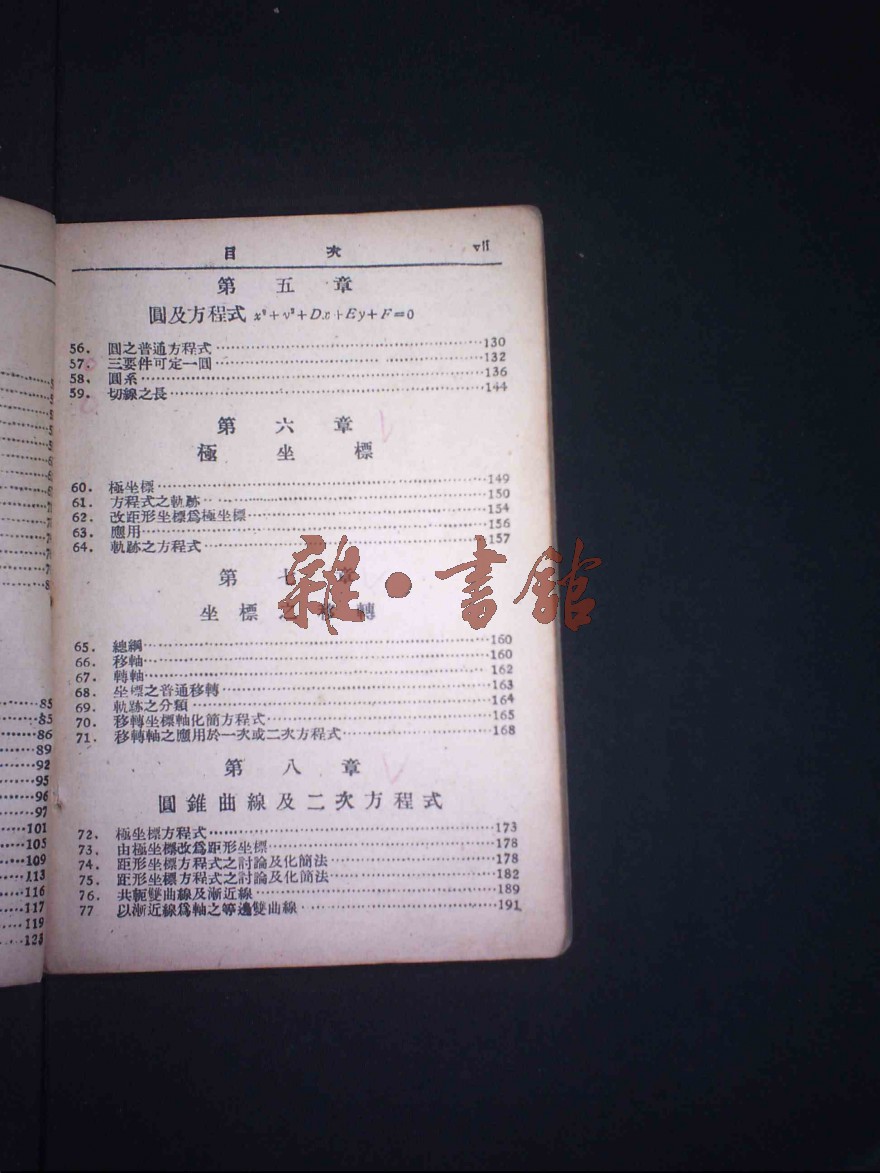 目 次 vii
第 五 章
圓及方程式 x²+y²+Dx+Ey+F=0
56. 圓之普通方程式 130
57. 三要件可定一圓 132
58. 圓系 136
59. 切線之長 144
第 六 章
極 坐 標
60. 極坐標 149
61. 方程式之軌跡 150
62. 改距形坐標爲極坐標 154
63. 應用 156
64. 軌跡之方程式 157
雜·書館
第 七 章
坐 標 之 移 轉
65. 總綱 160
66. 移軸 160
67. 轉軸 162
68. 坐標之普通移轉 163
69. 軌跡之分類 164
70. 移轉坐標軸化簡方程式 165
71. 移轉軸之應用於一次或二次方程式 168
第 八 章
圓錐曲線及二次方程式
72. 極坐標方程式 173
73. 由極坐標改爲距形坐標 178
74. 距形坐標方程式之討論及化簡法 178
75. 距形坐標方程式之討論及化簡法 182
76. 共軛雙曲線及漸近線 189
77 以漸近線爲軸之等邊雙曲線 191
85
85
86
89
92
95
96
97
101
105
109
113
116
117
119
123